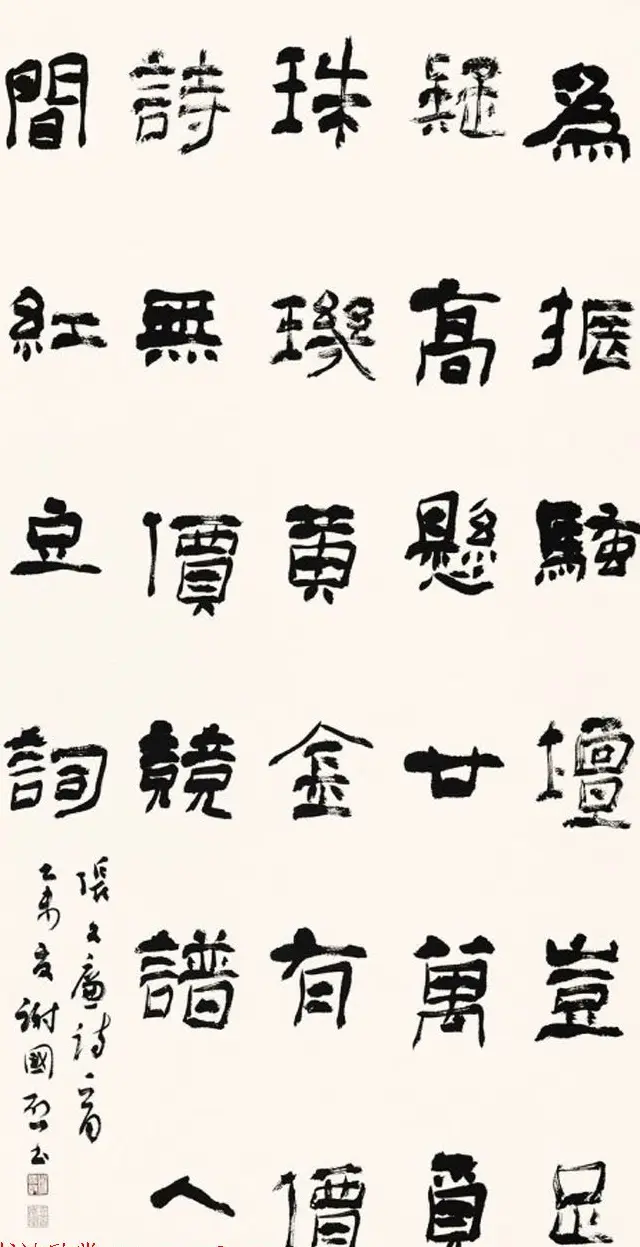 為振騷壇豈足
疑高懸廿萬買
珠璣黃金有價
詩無價競譜人
間紅豆詞
張文廉詩一首
乙未夏謝國启书